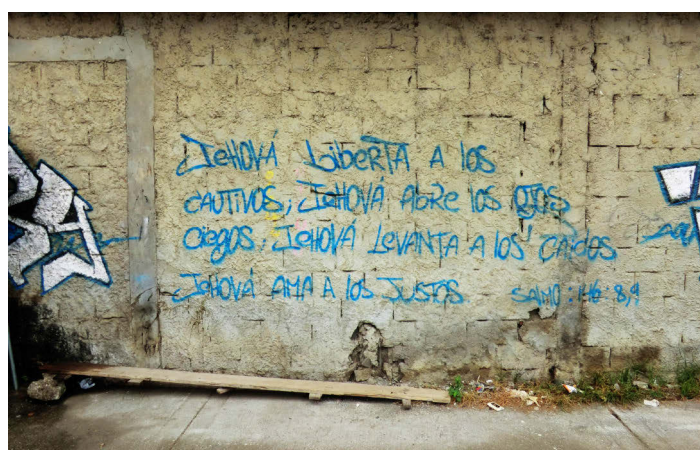 JEHOVÁ LibERTA A los
CAUTIVOS; JEHOVÁ AbRe los OJOS
ciegos; JEHOVÁ LEVANTA A los CAÍdos
JEHOVÁ AMA A los JUSTOS SAlMO: 146: 8,9